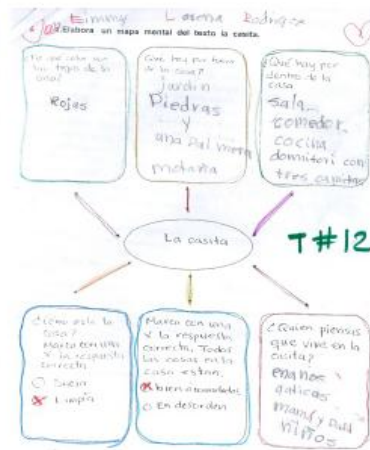 Eimmy Lorena Rodriguez
Elabora un mapa mental del texto la casita.
¿De que color son
las tejas de la
casa?
Rojas
Que hay por fuera
de la casa?
jardin
Piedras
y
una palmera
¿Qué hay por
dentro de la
casa
sala
comedor
cocina
con
tres camitas
La casita
T#12
¿Cómo está la
casa?
Marca con una
x la respuesta
correcta
Sucia
Limpia
Marca con una
x la respuesta
correcta, Todas
las cosas en la
casa estan.
bien acomodadas
En desorden
¿Quien piensas
que vive en la
casita?
enanos
gaticas
niños